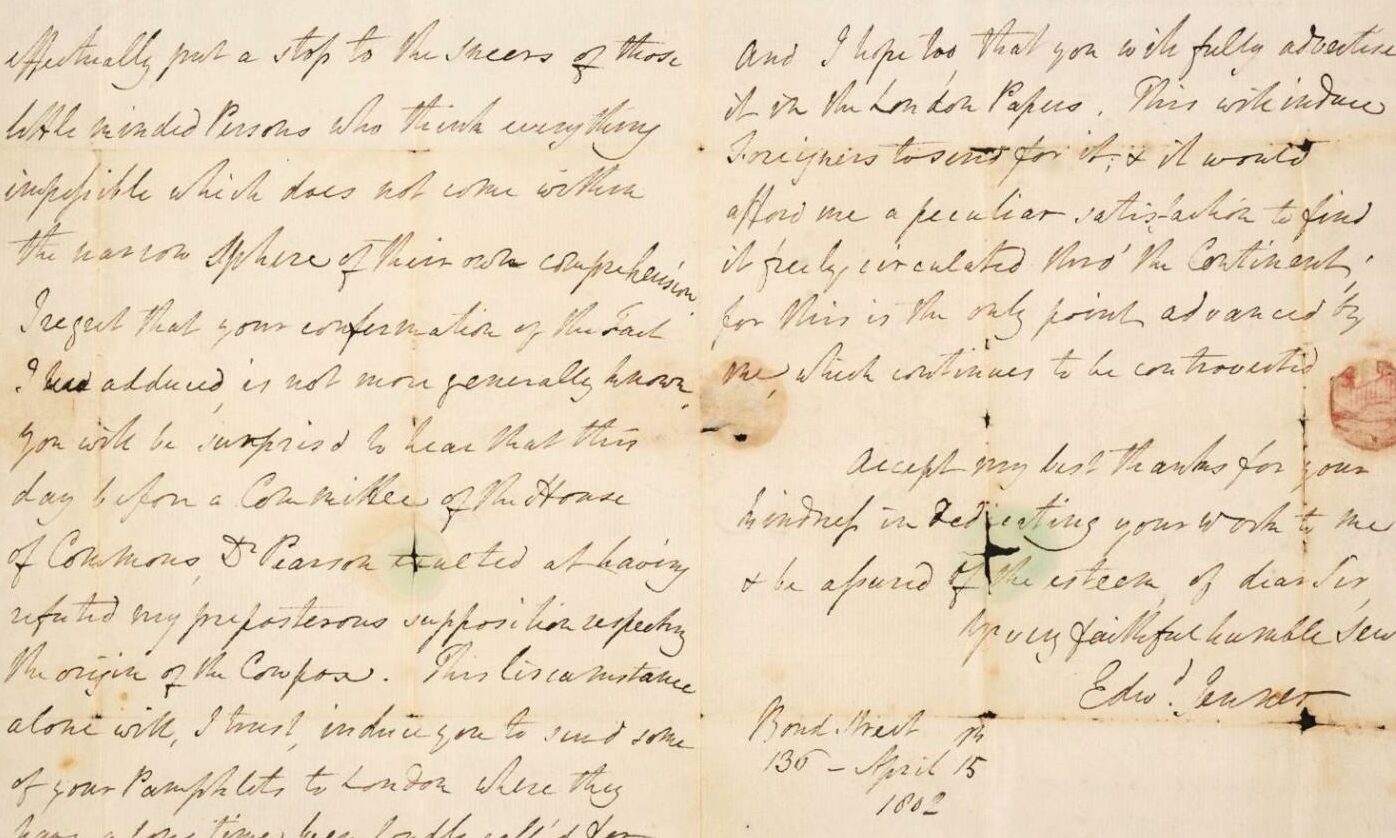 effectually put a stop to the sneers of those
little minded Persons who think everything
impossible which does not come within
the narrow Sphere of their own comprehension
I regret that your confirmation of the Fact
I had adduced, is not more generally known,
you will be surpris'd to hear that this
day before a Committee of the House
of Commons, Dr Pearson exulted at having
refuted my preposterous supposition respecting
the origin of the Cowpox. This Circumstance
alone will, I trust, induce you to send some
of your Pamphlets to London where they
have a long time been loudly call'd for
And I hope too that you will fully advertise
it in the London Papers. This will induce
Foreigners to send for it, & it would
afford me a peculiar satisfaction to find
it freely circulated thro' the Continent;
for this is the only point advanced by
me, which continues to be controverted
Accept my best thanks for your
kindness in Dedicating your work to me
& be assured of the esteem, of dear Sir,
Yr very faithful humble Serv
Edwd. Jenner
Bond Street
136 - April 15th
1802